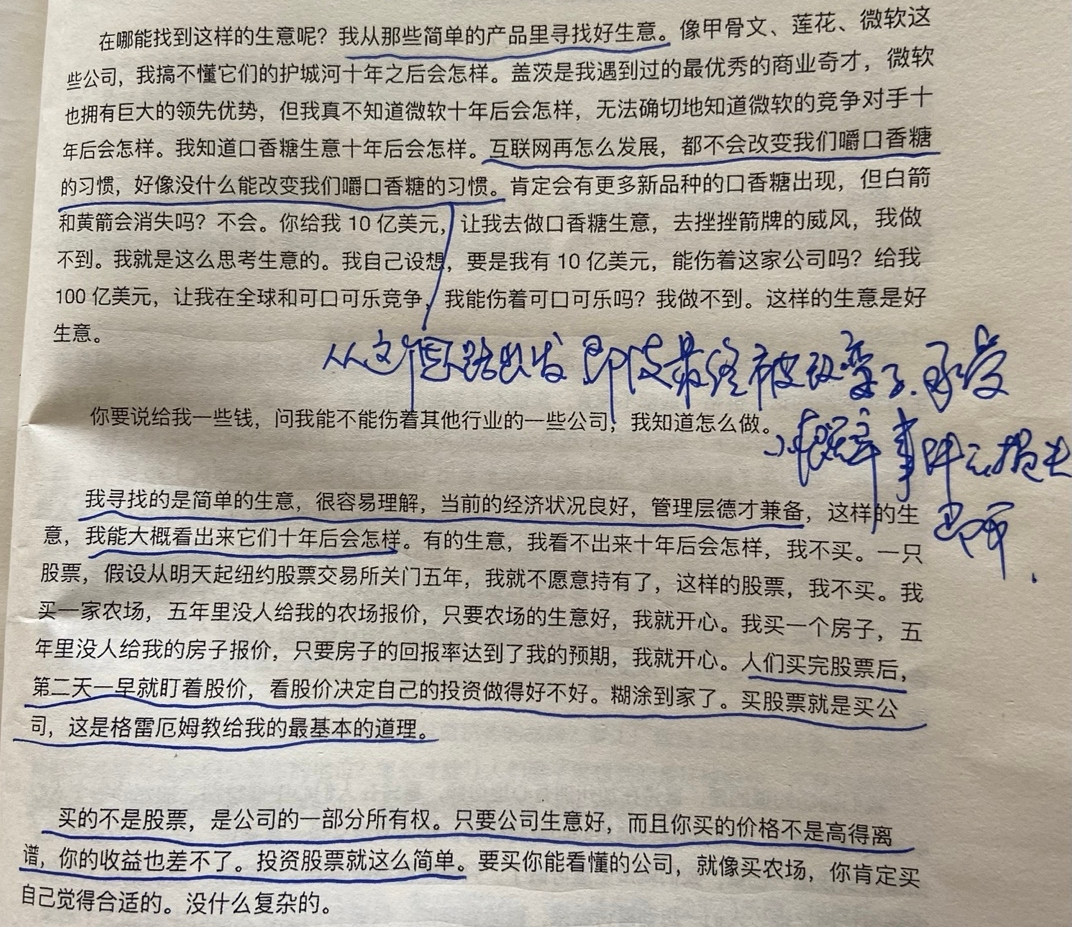 在哪能找到这样的生意呢？我从那些简单的产品里寻找好生意。像甲骨文、莲花、微软这
些公司，我搞不懂它们的护城河十年之后会怎样。盖茨是我遇到过的最优秀的商业奇才，微软
也拥有巨大的领先优势，但我真不知道微软十年后会怎样，无法确切地知道微软的竞争对手十
年后会怎样。我知道口香糖生意十年后会怎样。互联网再怎么发展，都不会改变我们嚼口香糖
的习惯，好像没什么能改变我们嚼口香糖的习惯。肯定会有更多新品种的口香糖出现，但白箭
和黄箭会消失吗？不会。你给我 10 亿美元，让我去做口香糖生意，去挫挫箭牌的威风，我做
不到。我就是这么思考生意的。我自己设想，要是我有 10 亿美元，能伤着这家公司吗？给我
100 亿美元，让我在全球和可口可乐竞争，我能伤着可口可乐吗？我做不到。这样的生意是好
生意。
从这个思路出发 即使最终被改变了，承受
小概率事件之损失
你要说给我一些钱，问我能不能伤着其他行业的一些公司，我知道怎么做。
我寻找的是简单的生意，很容易理解，当前的经济状况良好，管理层德才兼备，这样的生
意，我能大概看出来它们十年后会怎样。有的生意，我看不出来十年后会怎样，我不买。一只
股票，假设从明天起纽约股票交易所关门五年，我就不愿意持有了，这样的股票，我不买。我
买一家农场，五年里没人给我的农场报价，只要农场的生意好，我就开心。我买一个房子，五
年里没人给我的房子报价，只要房子的回报率达到了我的预期，我就开心。人们买完股票后，
第二天一早就盯着股价，看股价决定自己的投资做得好不好。糊涂到家了。买股票就是买公
司，这是格雷厄姆教给我的最基本的道理。
买的不是股票，是公司的一部分所有权。只要公司生意好，而且你买的价格不是高得离
谱，你的收益也差不了。投资股票就这么简单。要买你能看懂的公司，就像买农场，你肯定买
自己觉得合适的。没什么复杂的。